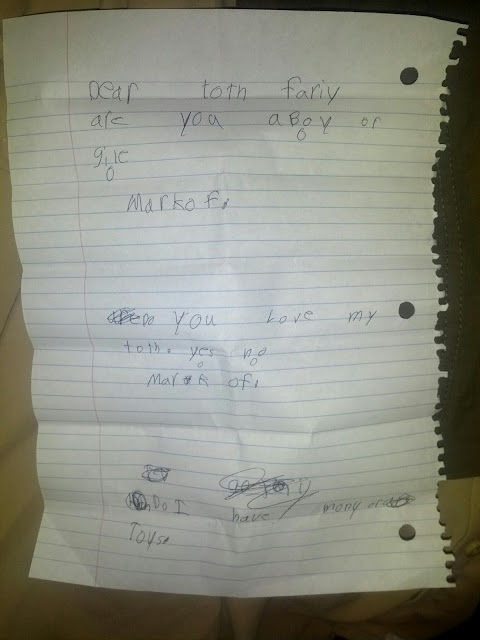 Dear toth fariy
are you a Boy or
girle
Mark of.
Do you Love my
toth. yes no
Mark of.
Do I have mony or
Toyse